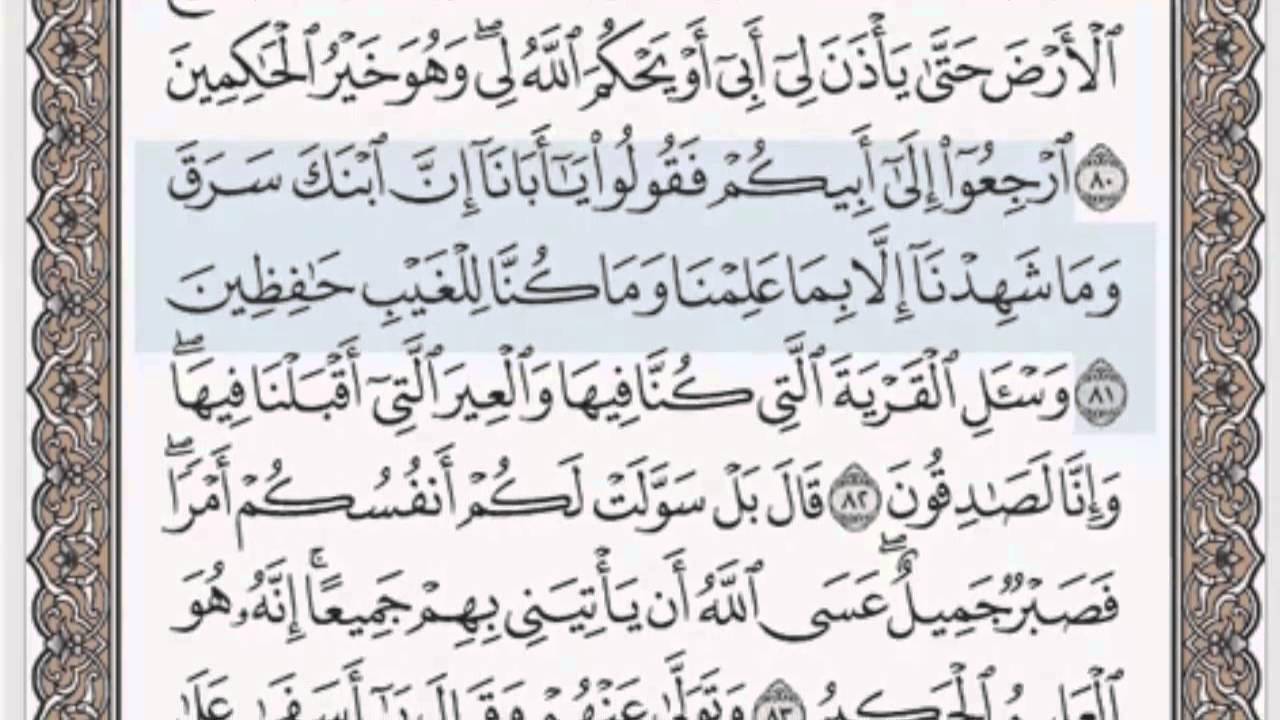 ٱلْأَرْضَ حَتَّىٰ يَأْذَنَ لِىٓ أَبِىٓ أَوْ يَحْكُمَ ٱللَّهُ لِىۖ وَهُوَ خَيْرُ ٱلْحَـٰكِمِينَ
٨٠ ٱرْجِعُوٓا۟ إِلَىٰٓ أَبِيكُمْ فَقُولُوا۟ يَـٰٓأَبَانَآ إِنَّ ٱبْنَكَ سَرَقَ
وَمَا شَهِدْنَآ إِلَّا بِمَا عَلِمْنَا وَمَا كُنَّا لِلْغَيْبِ حَـٰفِظِينَ
٨١ وَسْـَٔلِ ٱلْقَرْيَةَ ٱلَّتِى كُنَّا فِيهَا وَٱلْعِيرَ ٱلَّتِىٓ أَقْبَلْنَا فِيهَاۖ
وَإِنَّا لَصَـٰدِقُونَ ٨٢ قَالَ بَلْ سَوَّلَتْ لَكُمْ أَنفُسُكُمْ أَمْرًاۖ
فَصَبْرٌ جَمِيلٌۖ عَسَى ٱللَّهُ أَن يَأْتِيَنِى بِهِمْ جَمِيعًاۚ إِنَّهُۥ هُوَ
ٱلْعَلِيمُ ٱلْحَكِيمُ ٨٣ وَتَوَلَّىٰ عَنْهُمْ وَقَالَ يَـٰٓأَسَفَىٰ عَلَىٰ